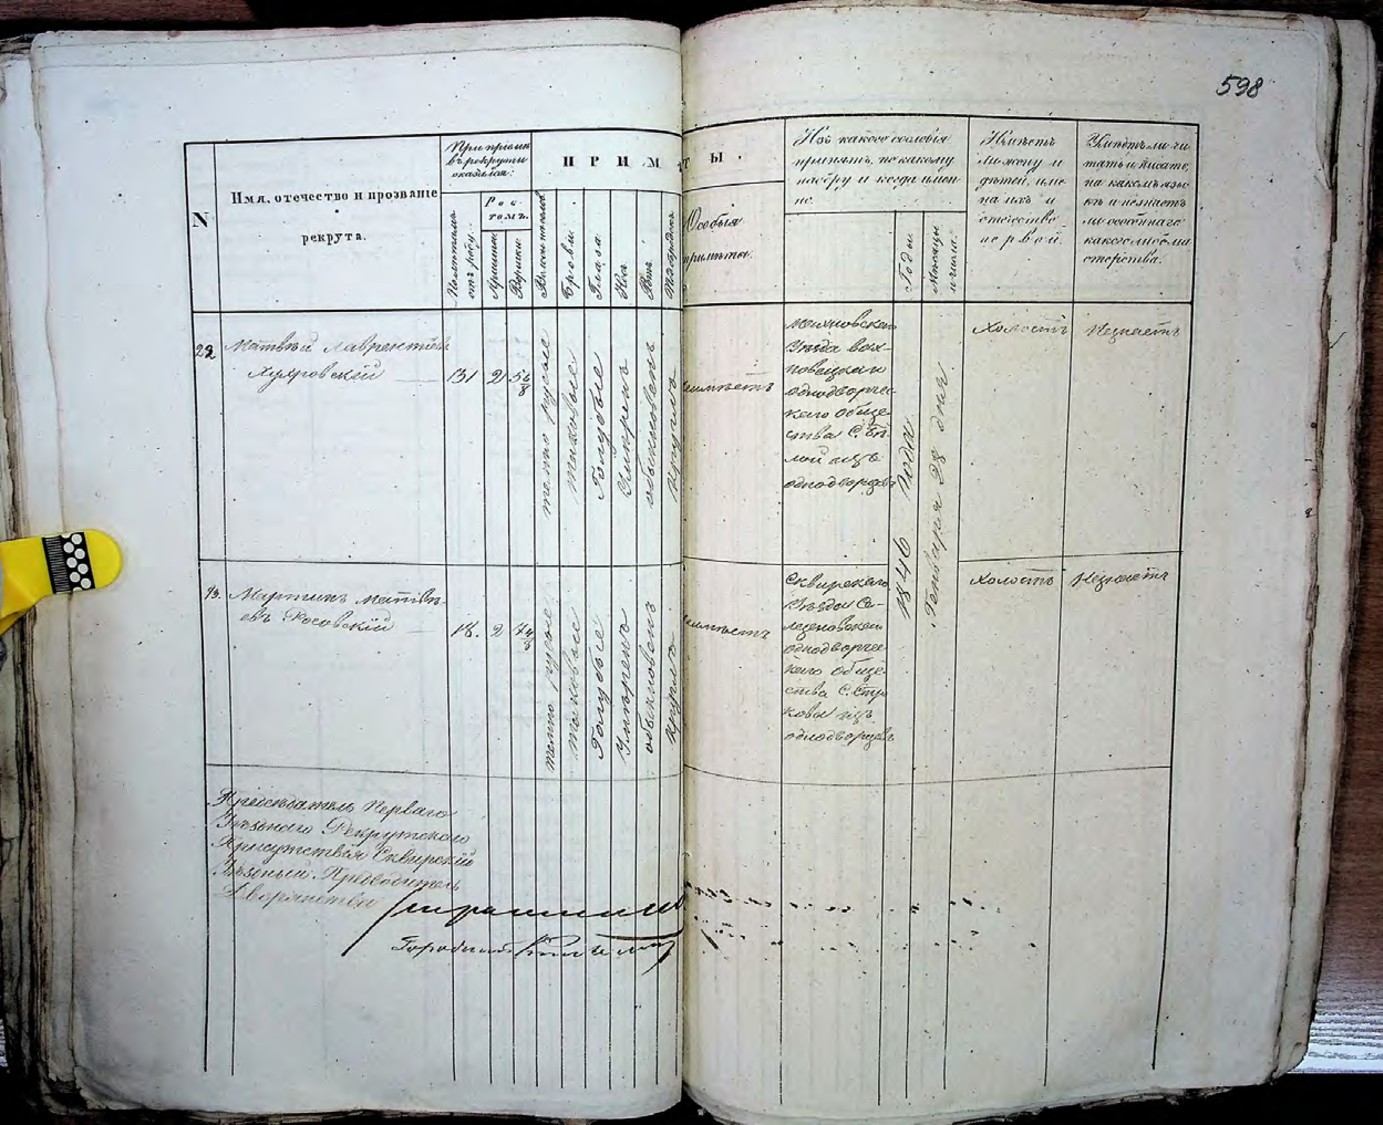 598
N
Имя, отечество и прозваніе
рекрута.
При пріемѣ
въ рекруты
оказался:
Полѣтамъ
отъ роду.
Рос-
томъ.
Аршины
Вершки
ПРИМ
ТЫ.
Брови.
Глаза.
Носъ
Ротъ
Особыя
примѣты.
Изъ какого сословія
принятъ, по какому
набору и когда имен-
но.
Годы.
Мѣсяцы
и числа.
Имѣетъ
ли жену и
дѣтей, име-
на ихъ и
отечество
первой.
Умѣетъ ли чи-
тать и писать,
на какомъ язы-
кѣ и незнаетъ
ли особеннаго
какого либо ма
стерства.
22
Матвѣй Лаврентіев
131
2
5 6/8
темнорусые
таковые
Голубые
обыкновенъ
Кругло
неимѣетъ
уѣзда
однодворче-
скаго обще-
ства С. Бѣ
лой изъ
однодворцевъ
1846 года
Генваря 28 дня
Холостъ
Незнаетъ
Мартинъ Матвѣ-
евъ Росовскій
18.
2
7 4/8
темнорусые
таковые
Голубые
обыкновенъ
Кругло
неимѣетъ
Сквирскаго
уѣзда
однодворче-
скаго обще-
ства С. Стро
кова изъ
однодворцевъ
Холостъ
Незнаетъ
Предсѣдатель Перваго
Уѣзднаго Рекрутскаго
Присутствія Сквирскій
Уѣздный Предводитель
Дворянства